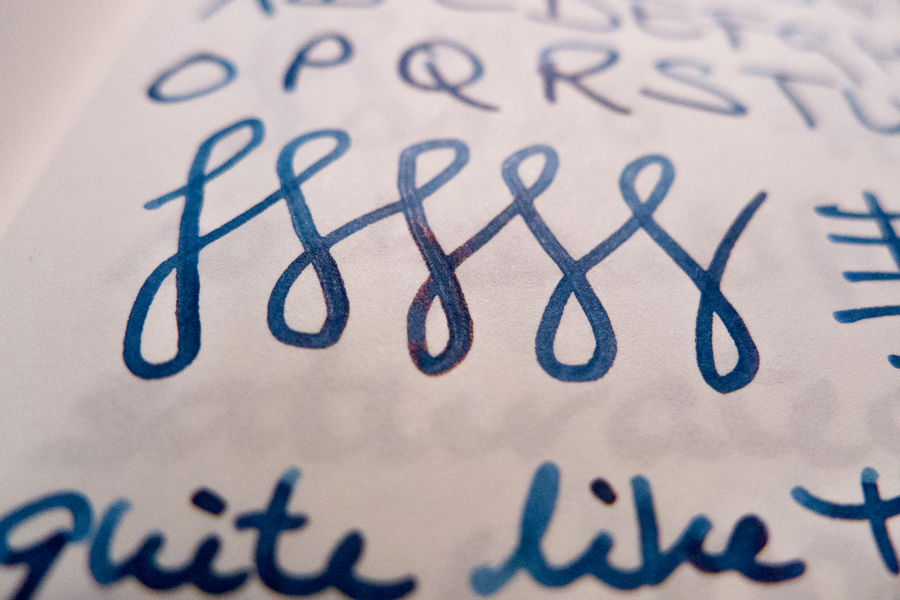 A B C D E F G H
O P Q R S T U
quite like